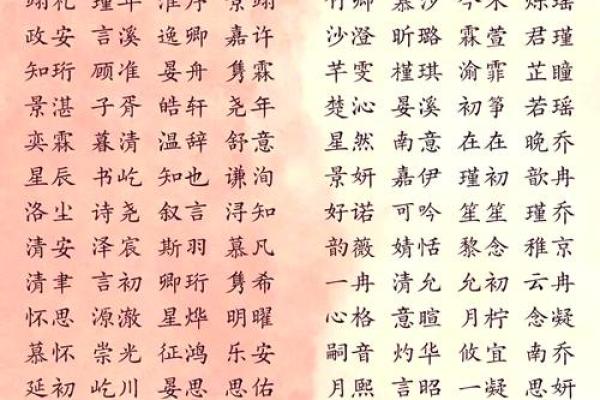 淮序 景翊 竹卿 慕汐
政安 言溪 逸卿 嘉许 沙澄 昕璐 霖萱 君瑾
知珩 顾准 晏舟 隽霖 芊雯 槿琪 渝霏 芷瞳
景湛 子胥 皓轩 尧年 楚沁 晏溪 初筝 若瑶
奕霖 暮清 温辞 舒意 星然 南意 在在 晚乔
星辰 书屹 知也 谦洵 景妍 嘉伊 瑾初 歆冉
洛尘 诗尧 叙言 浔知 好诺 可吟 笙笙 瑾乔
清安 泽宸 斯羽 慕凡 韵薇 婧恬 黎念 稚京
清聿 言初 卿珩 隽希 一冉 清允 允初 云冉
怀思 源澈 星烨 明曜 心格 意暄 月柠 念凝
慕怀 崇光 征鸿 乐安 嗣音 灼华 攸宜 南乔
延初 屹川 晏思 思佑 月熙 言昭 一凝 思妍